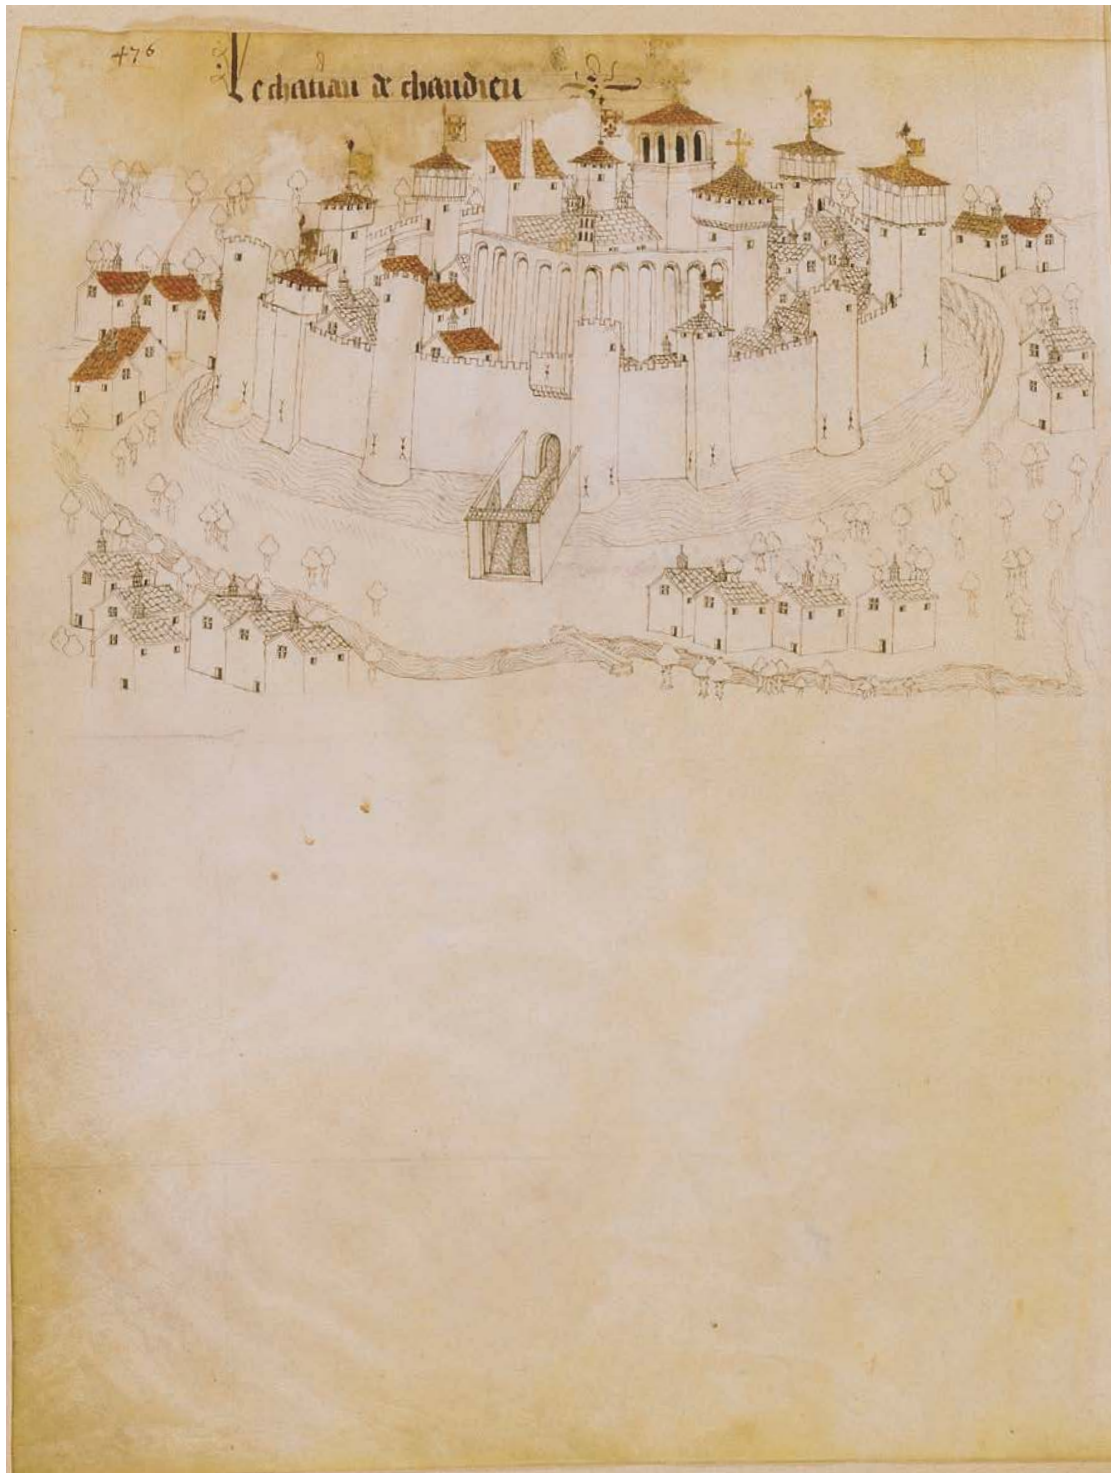 476
Le chastau de chaudieu